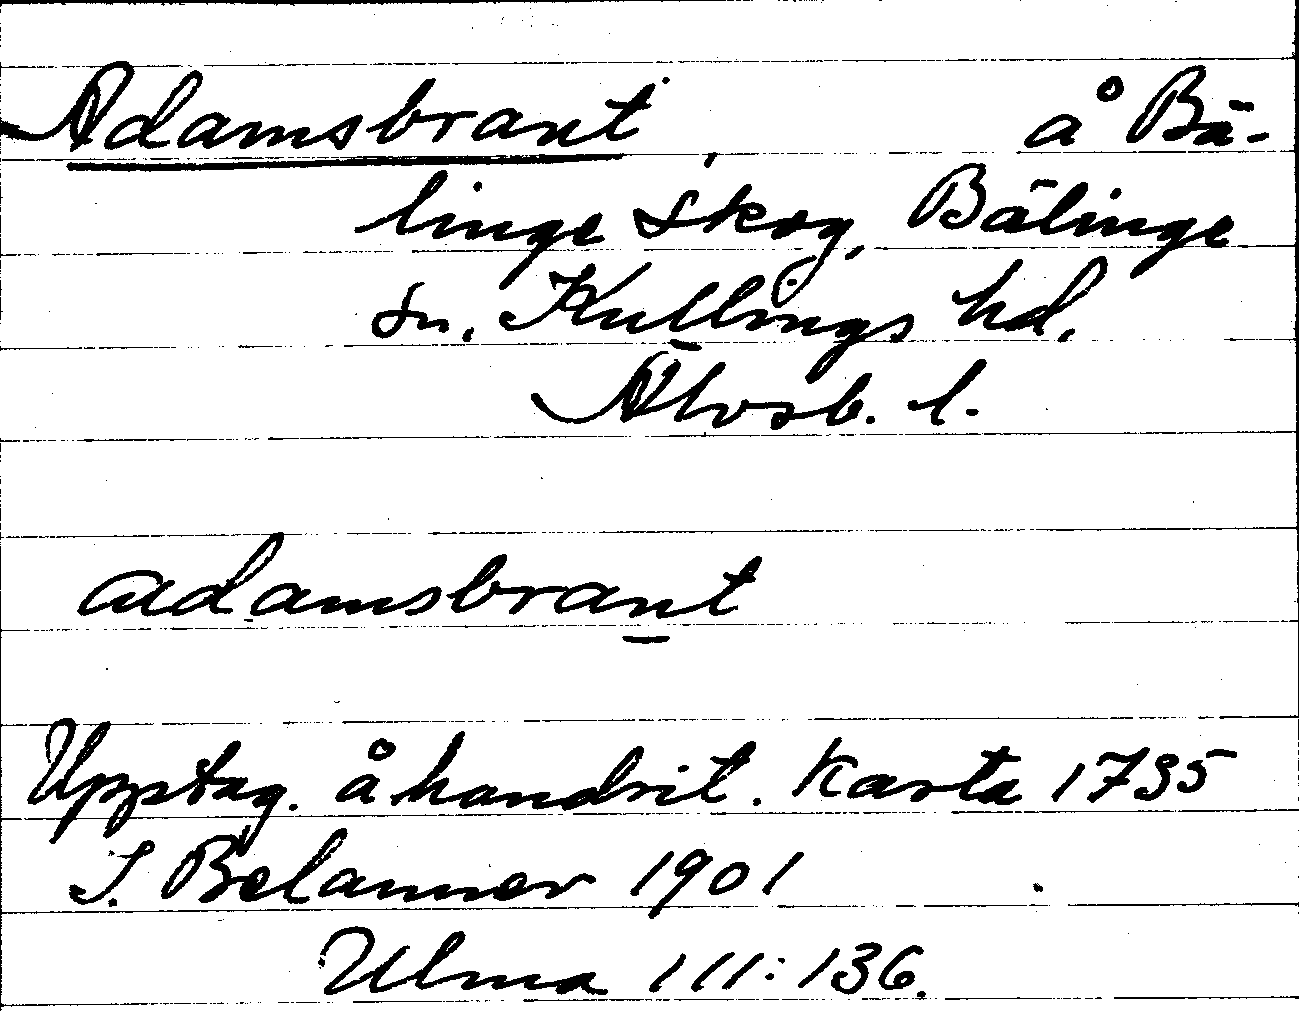 Adamsbrant, å Bä-
linge skog, Bälinge
sn. Kullings hd.
Älvsb. l.
adamsbrant
Upptag. å handrit. Karta 1735
I. Belanner 1901
Ulma 111:136.